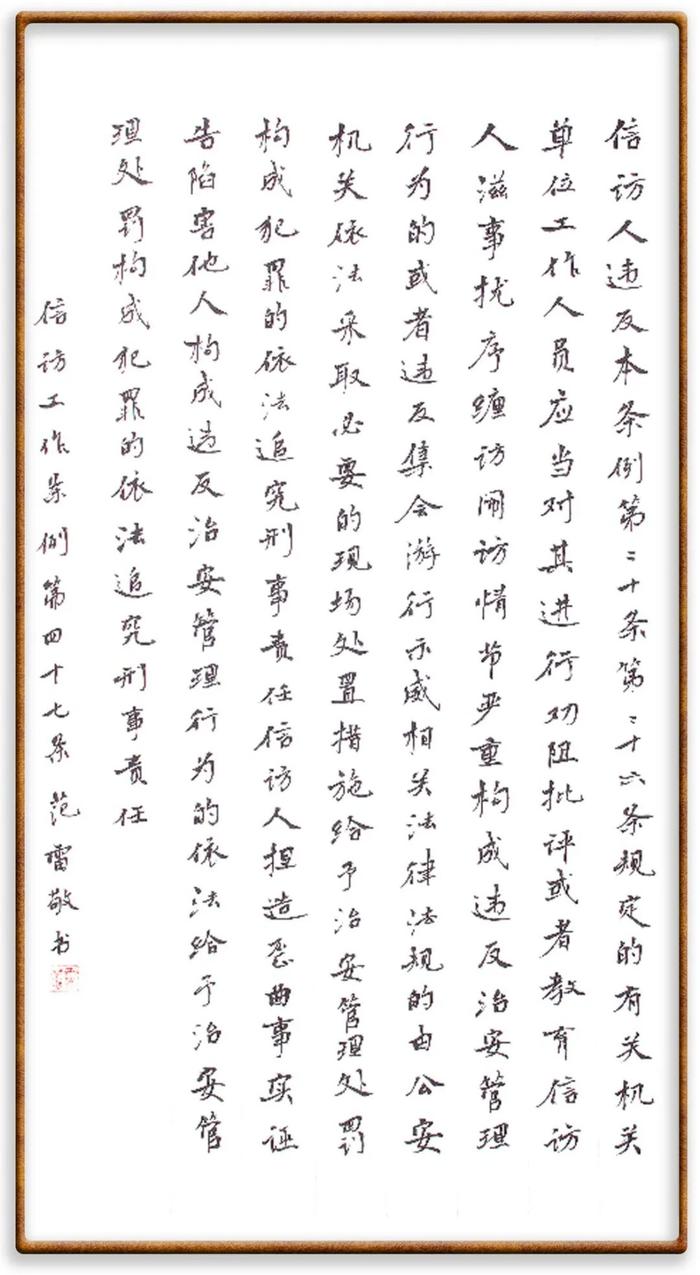 信访人违反本条例第二十条第二十六条规定的有关机关
单位工作人员应当对其进行劝阻批评或者教育信访
人滋事扰序缠访闹访情节严重构成违反治安管理
行为的或者违反集会游行示威相关法律法规的由公安
机关依法采取必要的现场处置措施给予治安管理处罚
构成犯罪的依法追究刑事责任信访人捏造歪曲事实诬
告陷害他人构成违反治安管理行为的依法给予治安管
理处罚构成犯罪的依法追究刑事责任
信访工作条例第四十七条范雷敬书